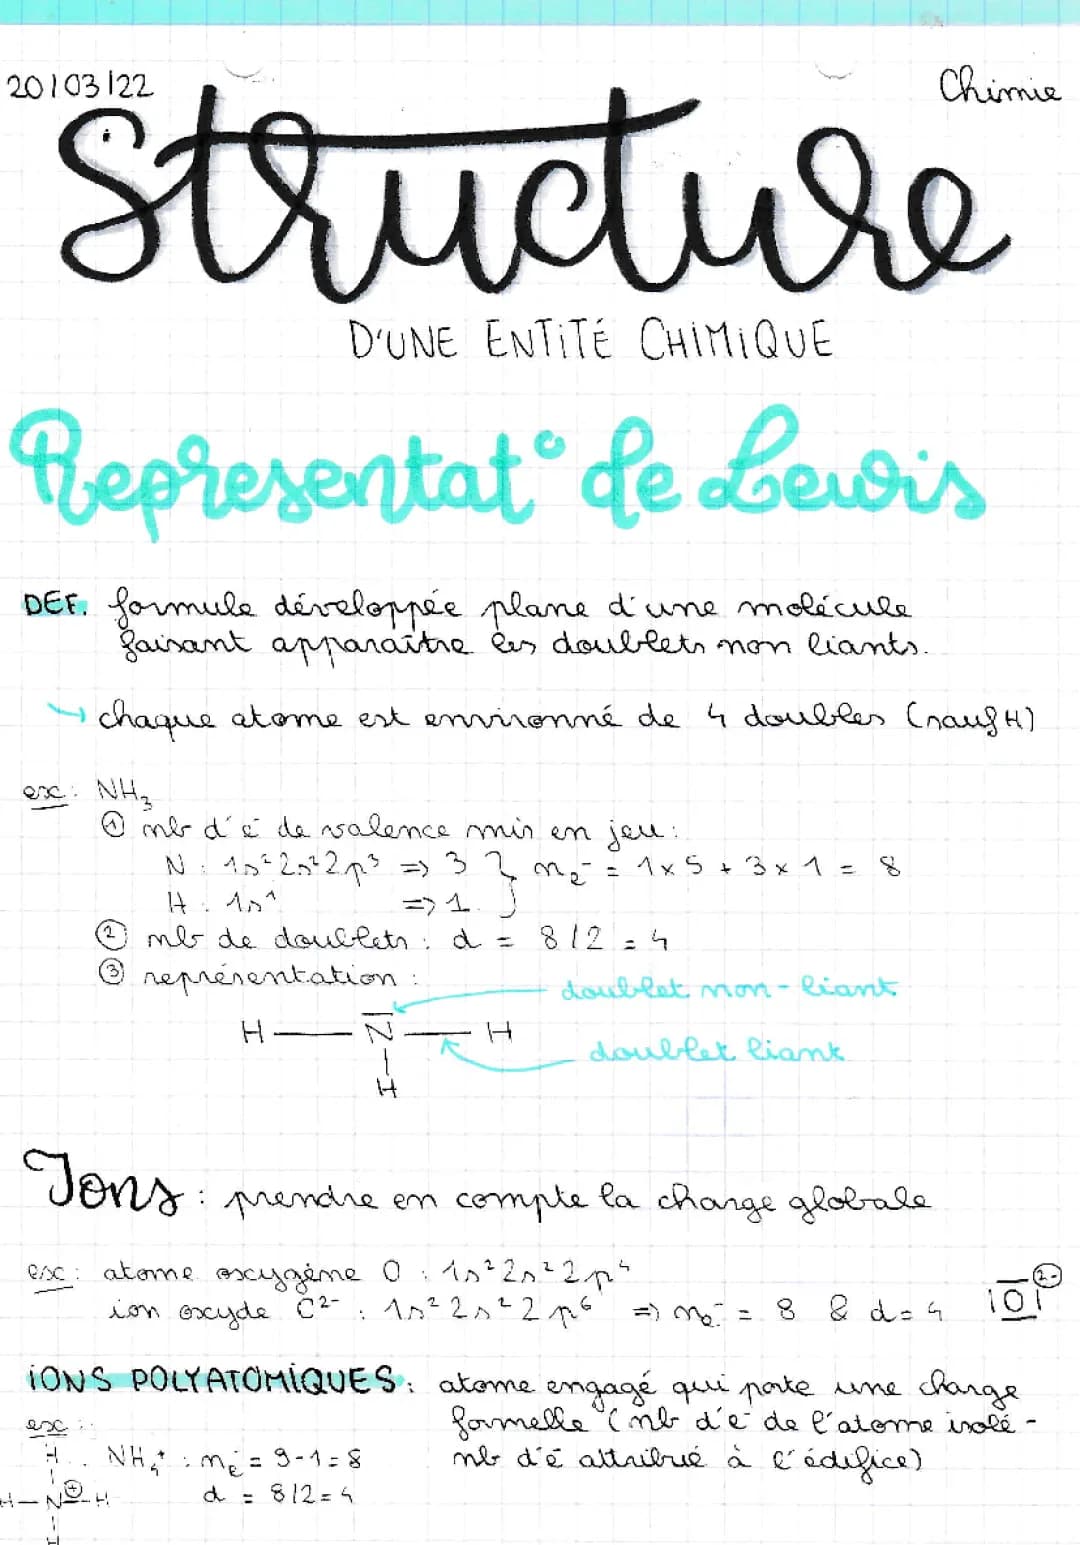 20/03/22
Chimie
Structure
D'UNE ENTITÉ CHIMIQUE
Representat° de Lewis
DEF. formule développée plane d'une molécule
faisant apparaître les doublets non liants.
↪ chaque atome est environné de 4 doubles (sauf H)
ex: NH₃
① nb d'é de valence mis en jeu:
N : 1s² 2s² 2p³ => 3 } nₑ- = 1 x 5 + 3 x 1 = 8
H : 1s¹ => 1
② nb de doublets : d = 8/2 = 4
③ représentation :
doublet non-liant
H — N — H
doublet liant
H
Ions : prendre en compte la charge globale
ex: atome oxygène O : 1s² 2s² 2p⁴
ion oxyde C²⁻ : 1s² 2s² 2p⁶ => nₑ- = 8 & d = 4 |O| 2-
IONS POLYATOMIQUES: atome engagé qui porte une charge
formelle (nb d'e⁻ de l'atome isolé -
nb d'ē attribué à l'édifice)
ex:
NH₄⁺ : nₑ- = 9-1 = 8
d = 8/2 = 4
H
H — N⊕ — H
H